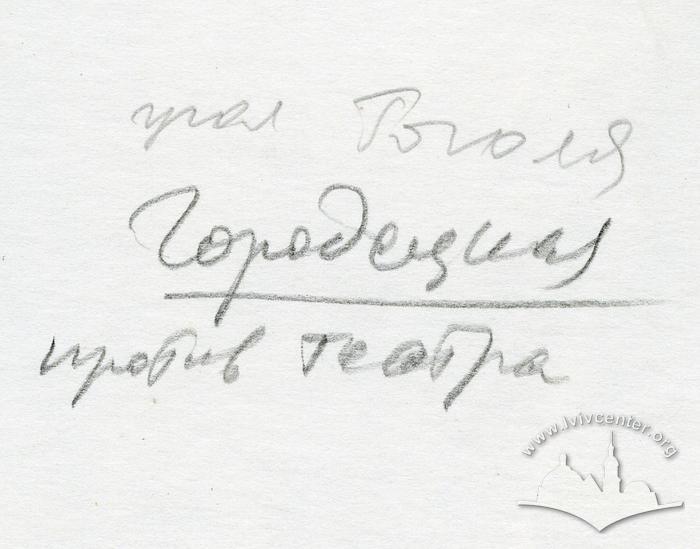 угол Гоголя
Городецкая
против театра
www.lvivcenter.org